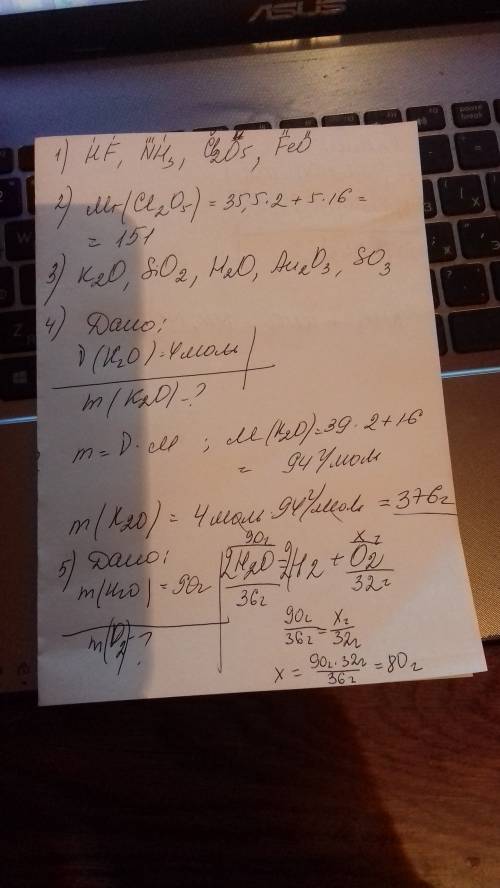 ASUS
pause
break
1) HF, NH3, Cl2O5, FeO
2) Mr(Cl2O5) = 35,5·2 + 5·16 =
= 151
3) K2O, SiO2, H2O, Au2O3, SO3
4) Дано:
ν(K2O) = 4 моль
m(K2O) - ?
m = ν·M ; M(K2O) = 39·2+16
= 94 г/моль
m(K2O) = 4 моль · 94 г/моль = 376 г
5) Дано:
m(H2O) = 90г
m(O2) - ?
90г xг
2H2O = 2H2 + O2
36г 32г
90г/36г = xг/32г
x = 90г·32г/36г = 80г